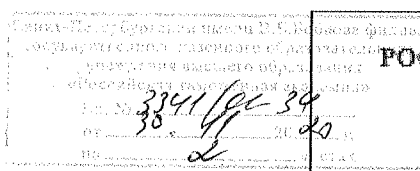 Санкт-Петербургский имени В.Б.Бобкова филиал
государственного казенного образовательного
учреждения высшего образования
«Российская таможенная академия»
Вх. № 3341/ос 34
от 30 11 2020 г.
на 2 листах
РО